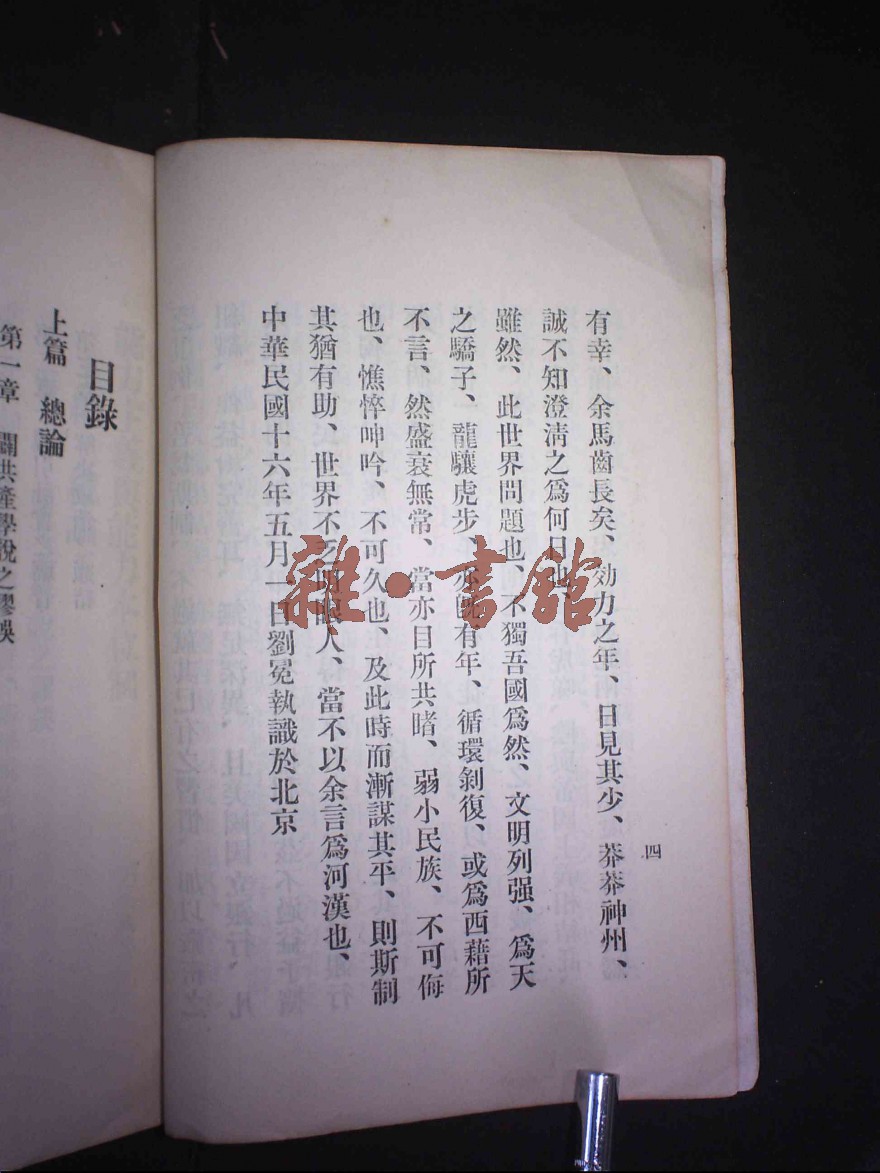 四
有幸、余馬齒長矣、効力之年、日見其少、莽莽神州、
誠不知澄淸之爲何日也、
雖然、此世界問題也、不獨吾國爲然、文明列强、爲天
之驕子、龍驤虎步、亦旣有年、循環剝復、或爲西藉所
不言、然盛衰無常、當亦目所共睹、弱小民族、不可侮
也、憔悴呻吟、不可久也、及此時而漸謀其平、則斯制
其猶有助、世界不乏明眼人、當不以余言爲河漢也、
中華民國十六年五月一日劉冕執識於北京
目錄
上篇 總論
第一章 闢共產學說之謬誤
雜·書館